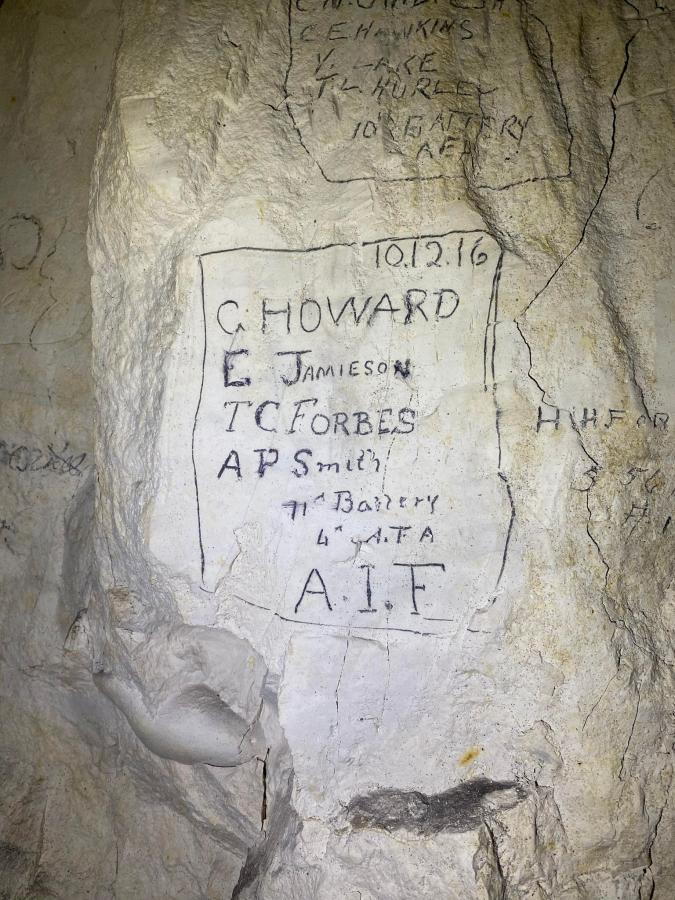 C E HAWKINS
V. LAKE
T L HURLEY
10th BATTERY
AFA
10.12.16
C HOWARD
E JAMIESON
T C FORBES
A P Smith
Battery
4th A.F A
A.I.F
H H FOR